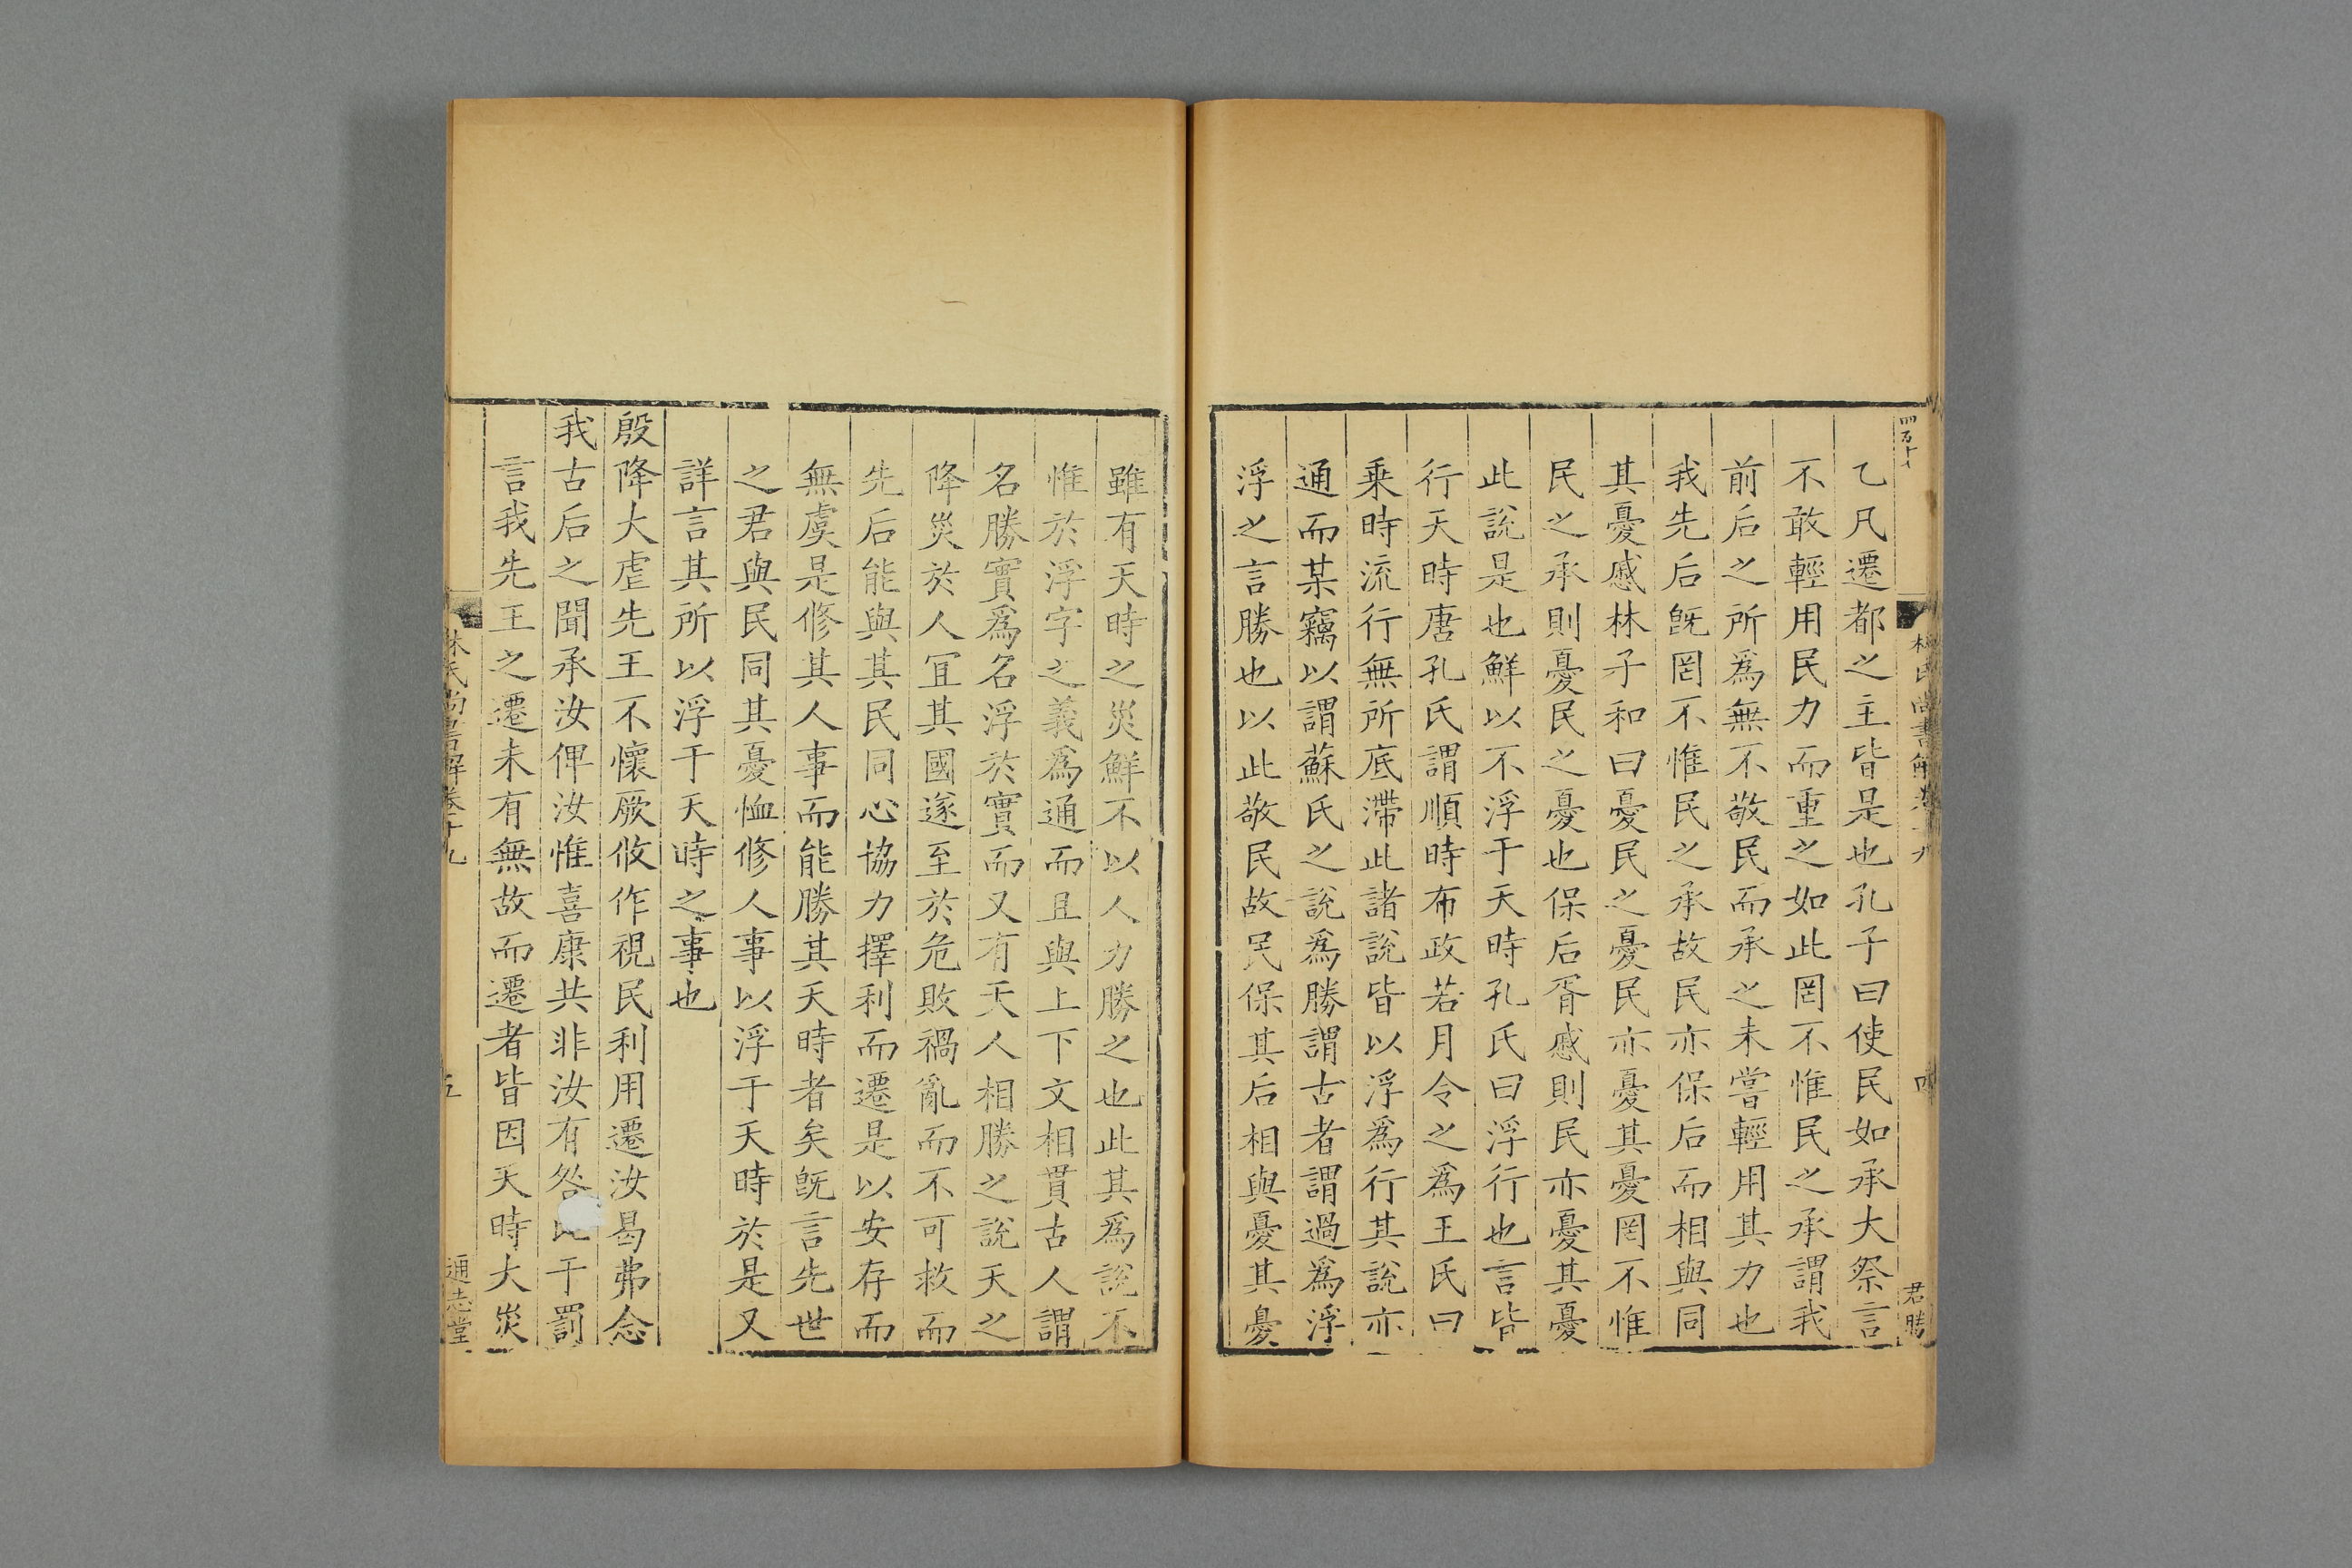 乙凡遷都之主皆是也孔子曰使民如承大祭言
不敢輕用民力而重之如此罔不惟民之承謂我
前后之所爲無不敬民而承之未嘗輕用其力也
我先后旣罔不惟民之承故民亦保后而相與同
其憂慼林子和曰憂民之憂民亦憂其憂罔不惟
民之承則憂民之憂也保后胥慼則民亦憂其憂
此說是也鮮以不浮于天時孔氏曰浮行也言皆
行天時唐孔氏謂順時布政若月令之爲王氏曰
乘時流行無所底滯此諸說皆以浮爲行其說亦
通而某竊以謂蘇氏之說爲勝謂古者謂過爲浮
浮之言勝也以此敬民故民保其后相與憂其憂
雖有天時之災鮮不以人力勝之也此其爲說不
惟於浮字之義爲通而且與上下文相貫古人謂
名勝實爲名浮於實而又有天人相勝之說天之
降災於人宜其國遂至於危敗禍亂而不可救而
先后能與其民同心協力擇利而遷是以安存而
無虞是修其人事而能勝其天時者矣旣言先世
之君與民同其憂恤修人事以浮于天時於是又
詳言其所以浮于天時之事也
殷降大虐先王不懷厥攸作視民利用遷汝曷弗念
我古后之聞承汝俾汝惟喜康共非汝有咎于罰
言我先王之遷未有無故而遷者皆因天時大災
林氏尚書解卷十九
五
通志堂